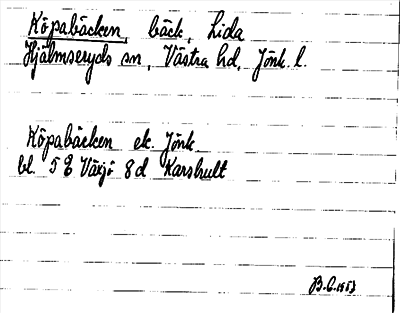 Köpabäcken, bäck, Lida
Hjälmseryds sn, Västra hd, Jönk. l.
Köpabäcken ek. Jönk.
bl. 5 E Växjö 8d Karshult
B.C. 1953